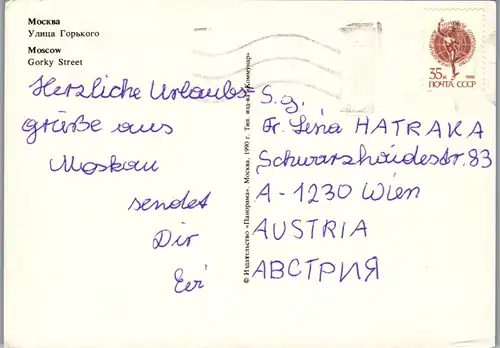 Москва
Улица Горького
Moscow
Gorky Street
Herzliche Urlaubs-
grüße aus
Moskau
sendet
Dir
© Издательство «Панорама». Москва. 1990 г. Тип. изд-ва «Коммунар»
35к 1988
ПОЧТА СССР
S.g.
Fr. Lena HATRAKA
Schwarzhaidestr. 83
A-1230 Wien
AUSTRIA
АВСТРИЯ